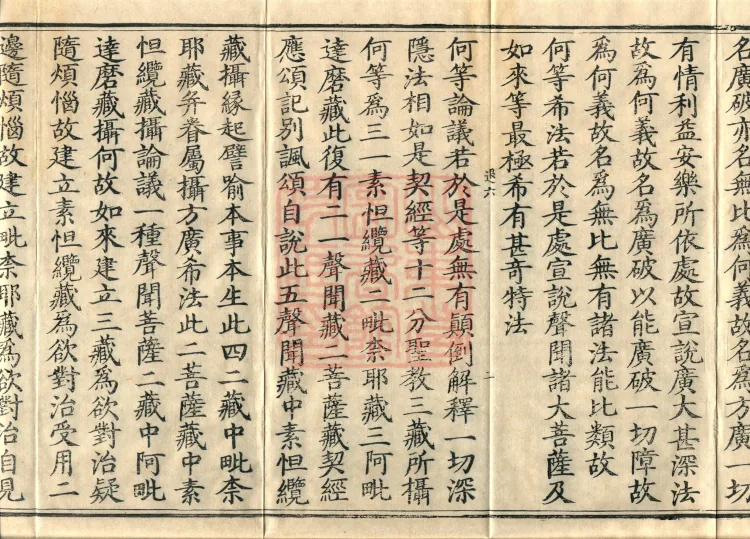 名廣破亦名無比爲何義故名爲方廣一切
有情利益安樂所依處故宣說廣大甚深法
故爲何義故名爲廣破以能廣破一切障故
爲何義故名爲無比無有諸法能比類故
何等希法若於是處宣說聲聞諸大菩薩及
如來等最極希有甚奇特法
退六
二
何等論議若於是處無有顛倒解釋一切深
隱法相如是契經等十二分聖教三藏所攝
何等爲三一素怛纜藏二毗柰耶藏三阿毗
達磨藏此復有二一聲聞藏二菩薩藏契經
應頌記别諷頌自說此五聲聞藏中素怛纜
藏攝緣起譬喻本事本生此四二藏中毗柰
耶藏并眷屬攝方廣希法此二菩薩藏中素
怛纜藏攝論議一種聲聞菩薩二藏中阿毗
達磨藏攝何故如來建立三藏爲欲對治疑
隨煩惱故建立素怛纜藏爲欲對治受用二
邊隨煩惱故建立毗柰耶藏爲欲對治自見